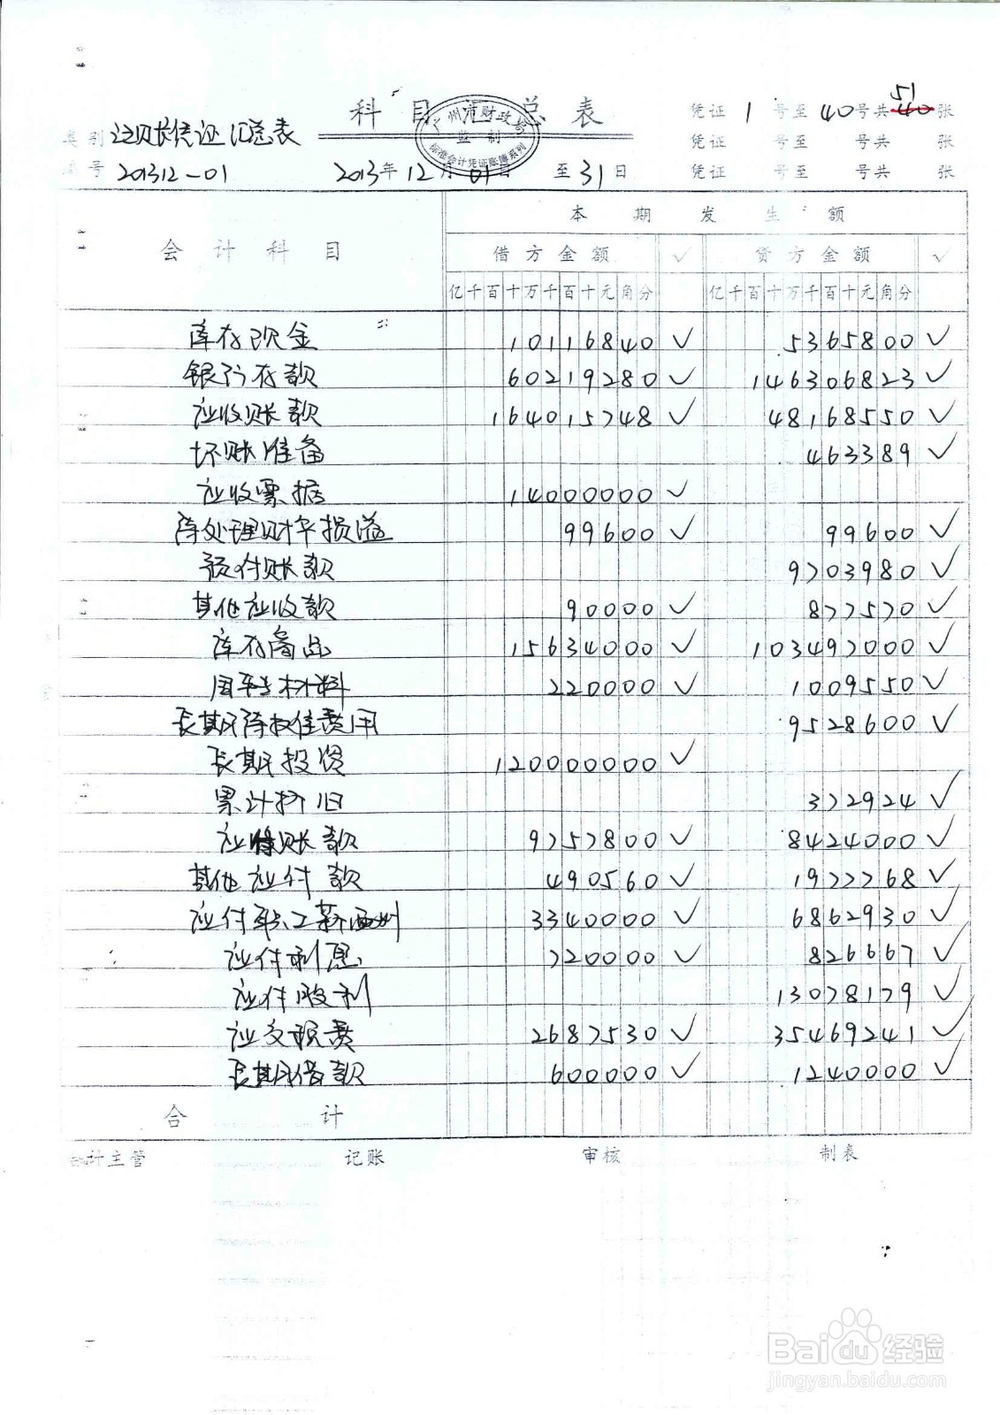 科目汇总表
广州市财政局
监制
标准会计凭证账簿系列
凭证 1 号至 40 号共 51 40 张
类别 记账凭证汇总表
凭证 号至 号共 张
编号 201312-01 2013年12月01日 至31日
凭证 号至 号共 张
会计科目
本期发生额
借方金额 √ 贷方金额 √
亿千百十万千百十元角分 亿千百十万千百十元角分
库存现金 10116840 √ 5365800 √
银行存款 60219280 √ 146306823 √
应收账款 164015748 √ 48168550 √
坏账准备 463389 √
应收票据 14000000 √
待处理财产损溢 99600 √ 99600 √
预付账款 9703980 √
其他应收款 90000 √ 877570 √
库存商品 15634000 √ 103497000 √
周转材料 220000 √ 1009550 √
长期待摊费用 9528600 √
长期投资 120000000 √
累计折旧 372924 √
应付账款 9757800 √ 8424000 √
其他应付款 490560 √ 1977768 √
应付职工薪酬 3340000 √ 6862930 √
应付利息 720000 √ 826667 √
应付股利 13078179 √
应交税费 2687530 √ 35469241 √
长期借款 600000 √ 1240000 √
合计
会计主管 记账 审核 制表
Baidu经验
jingyan.baidu.com